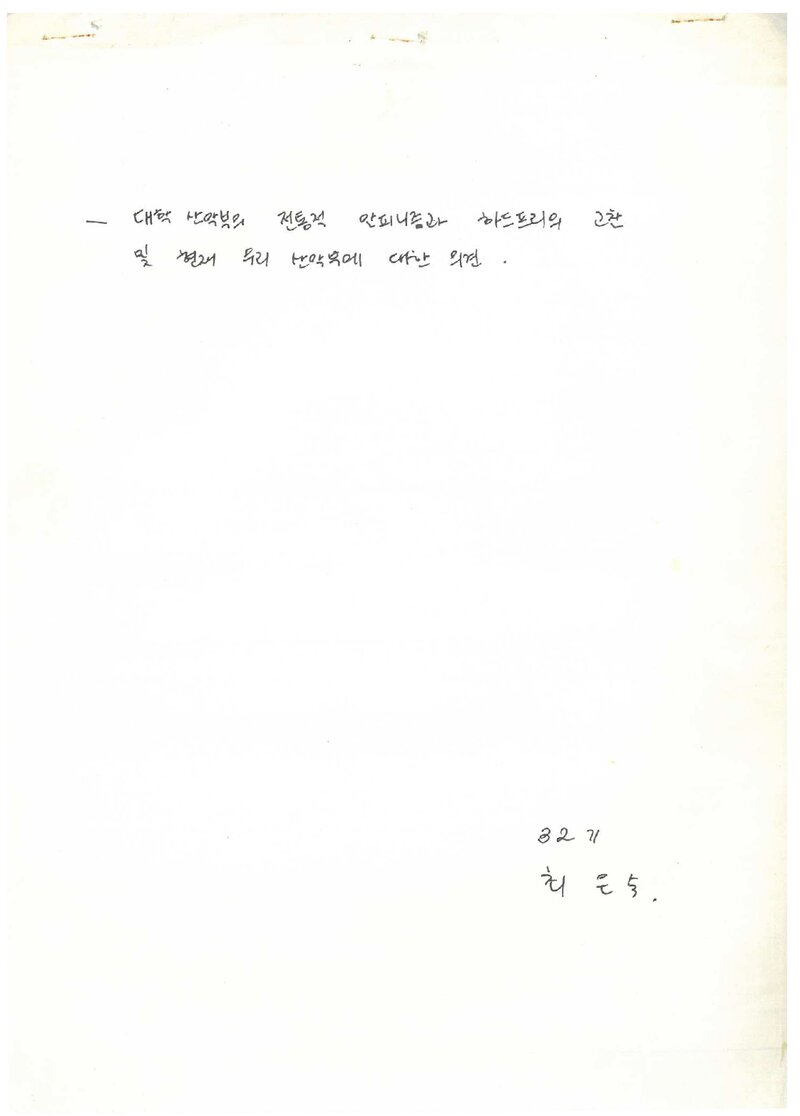 — 대학 산악부의 전통적 알피니즘과 하드프리의 고찰
및 현재 우리 산악부에 대한 의견.
32기
최은숙.